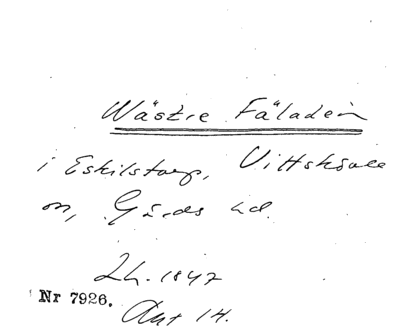 Wästre Fäladen
i Eskilstorp, Vittskövle
sn, Gärds hd.
Lh. 1847
Nr 7926.
Akt 14.